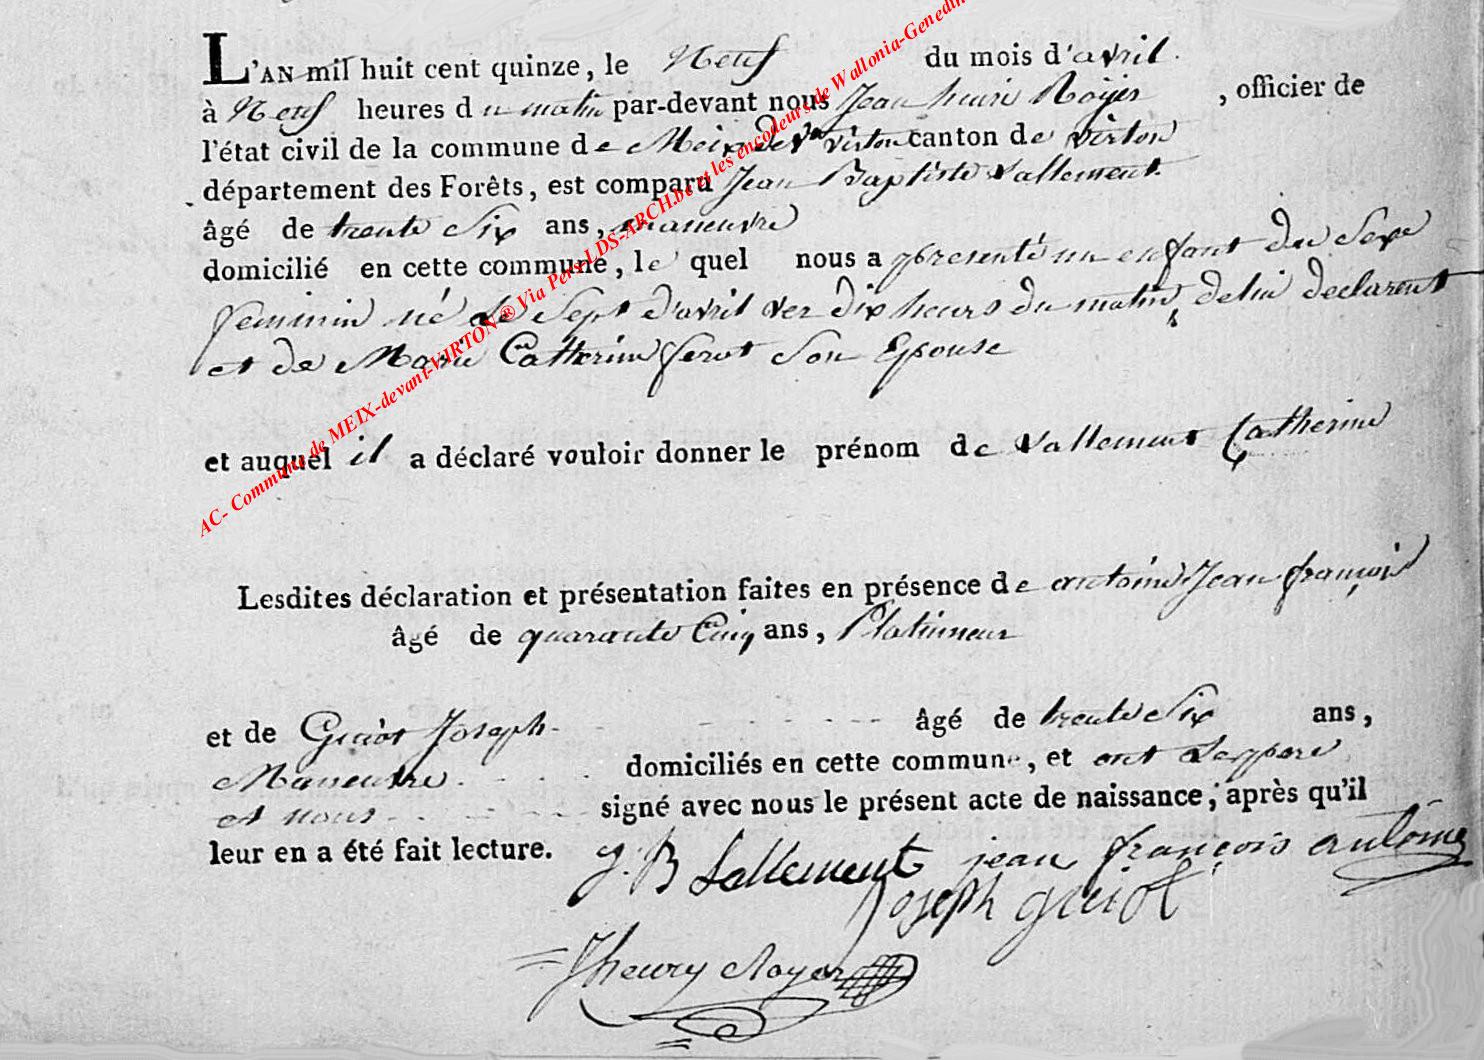 L'AN mil huit cent quinze, le Neuf du mois d'avril.
à Neuf heures du matin par-devant nous Jean henri Royer, officier de
l'état civil de la commune de Meix devt virton canton de virton
département des Forêts, est comparu Jean Baptiste Vallement.
âgé de trente Six ans, maneuvre
domicilié en cette commune, le quel nous a presenté un enfant du Sexe
feminin né le Sept d'avril ver dix heurs du matin, de lui declarent
et de Marie Catherine ferot Son Epouse
et auquel il a déclaré vouloir donner le prénom de Vallement Catherine
Lesdites déclaration et présentation faites en présence de antoine Jean françois
âgé de quarante Cinq ans, Platinneur
et de Guiot Joseph âgé de trente Six ans,
Maneuvre. domiciliés en cette commune, et ont Le pere
et nous signé avec nous le présent acte de naissance, après qu'il
leur en a été fait lecture.
J. B Lallement jean françois antoine
Joseph guiot
Jhenry Royer
AC- Commune de MEIX-devant-VIRTON ® Via Pers-LDS-ARCH.be et les encodeurs de Wallonia-Genedin